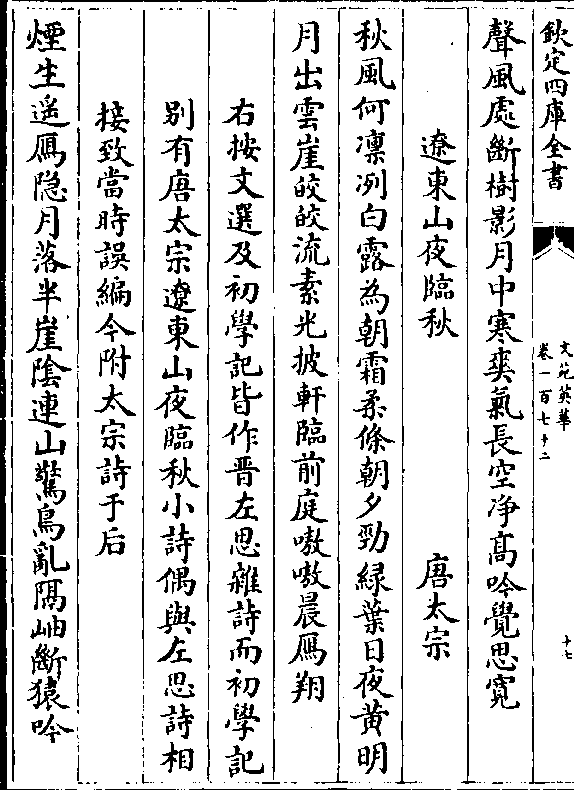 欽定四庫全書
文苑英華
卷一百七十二
十七
聲風處斷樹影月中寒爽氣長空净髙吟覺思寛
遼東山夜臨秋
唐太宗
秋風何凛冽白露為朝霜柔條朝夕勁緑葉日夜黄明
月出雲崖皎皎流素光披軒臨前庭嗷嗷晨鴈翔
右按文選及初學記皆作晋左思雜詩而初學記
别有唐太宗遼東山夜臨秋小詩偶與左思詩相
接致當時誤編今附太宗詩于后
煙生遥鴈隐月落半崖隂連山驚鳥亂隔岫斷猿吟